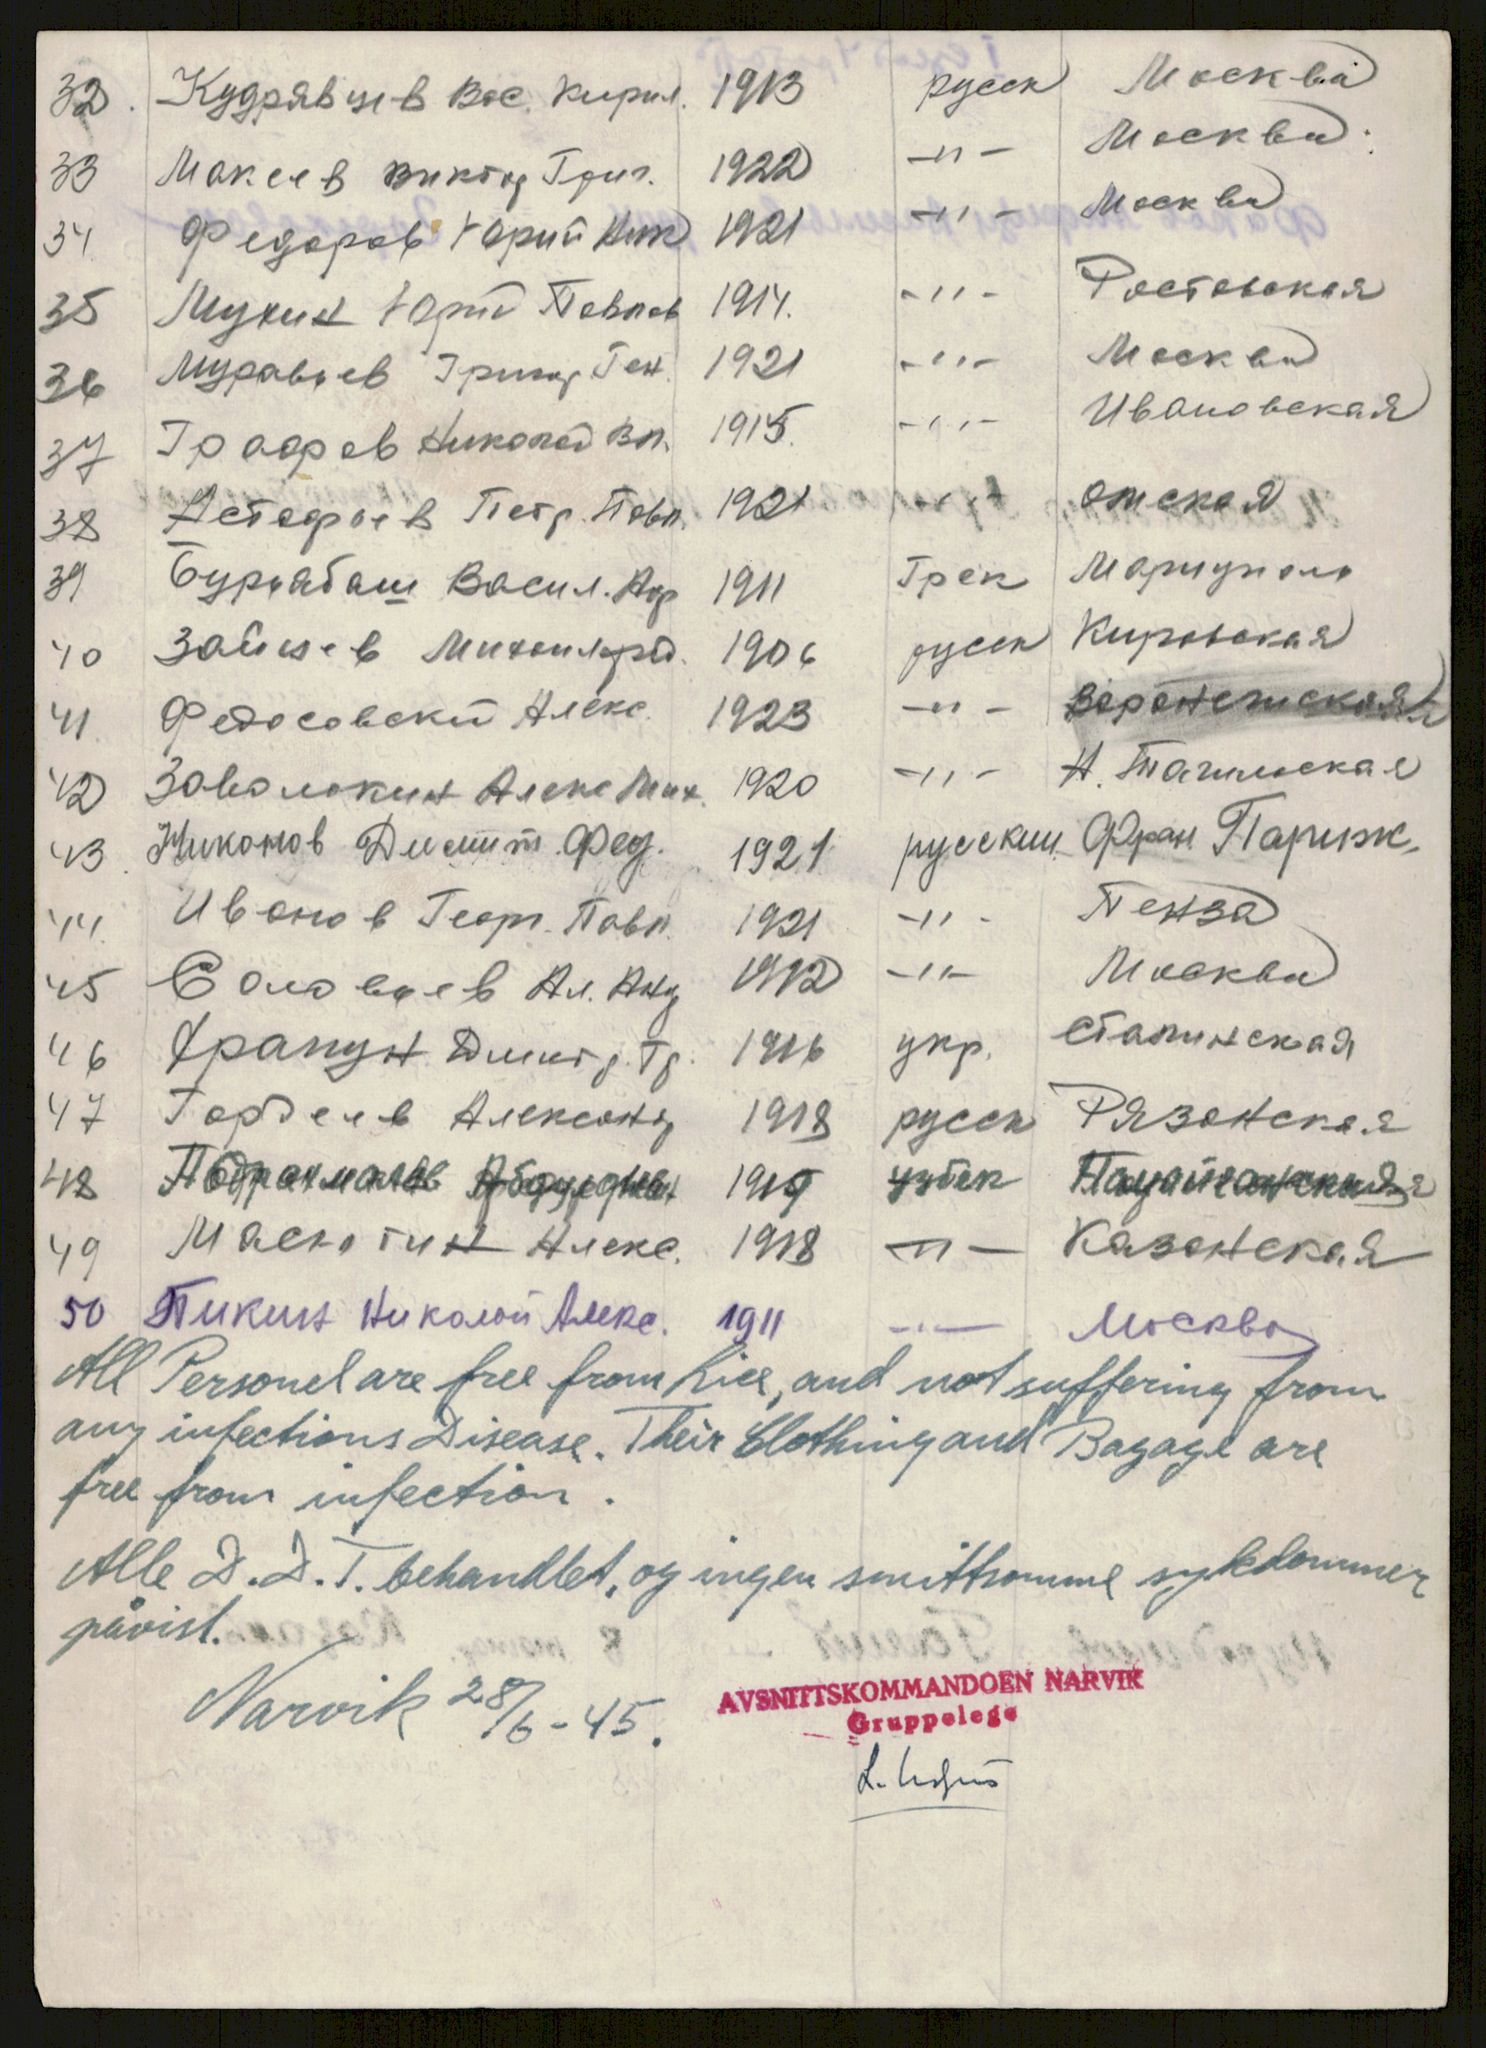 32. Кудрявцев Вас. Кирил. 1913 русск Москва
33 Макеев Виктор Григ. 1922 -"- Москва
34 Федоров Юрий Ник 1921 -"- Москва
35 Мухин Юрий Павлов 1914. -"- Ростовская
36 Муравьев Григор Ген. 1921 -"- Москва
37 Николай Вл. 1915. -"- Ивановская
38 Астафьев Петр. Павл. 1921 -"- Омская
39 Бурлабаш Васил. 1911 Грек Мариуполь
40 Зайцев Михаил 1906 русск Кировская
41 Федосовский Алекс. 1923 -"- Воронежская
42 Заволокин Алекс Мих. 1920 -"- Н. Тагильская
43 Никонов Дмит Фед. 1921 русский Фран Париж.
44 Иванов Георг. Павл. 1921 -"- Пенза
45 Соловьев Ал. Анд 1912 -"- Москва
46 Храпун Дмитр. Гр. 1916 укр. Сталинская
47 Гордеев Александ 1918 русск Рязанская
48 узбек
49 Алекс. 1918 -"- Казанская
50 Пикин Николай Алекс. 1911 -"- Москва
All Personel are free from Lice, and not suffering from
any infections Disease. Their Clothing and Bagage are
free from infection.
Alle D.D.T. behandlet, og ingen smittsomme sykdommer
påvist.
Narvik 28/6-45.
AVSNITTSKOMMANDOEN NARVIK
Gruppelege
L.